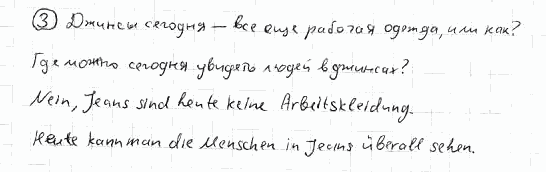 ③ Джинсы сегодня – все еще рабочая одежда, или как?
Где можно сегодня увидеть людей в джинсах?
Nein, Jeans sind heute keine Arbeitskleidung.
Heute kann man die Menschen in Jeans überall sehen.